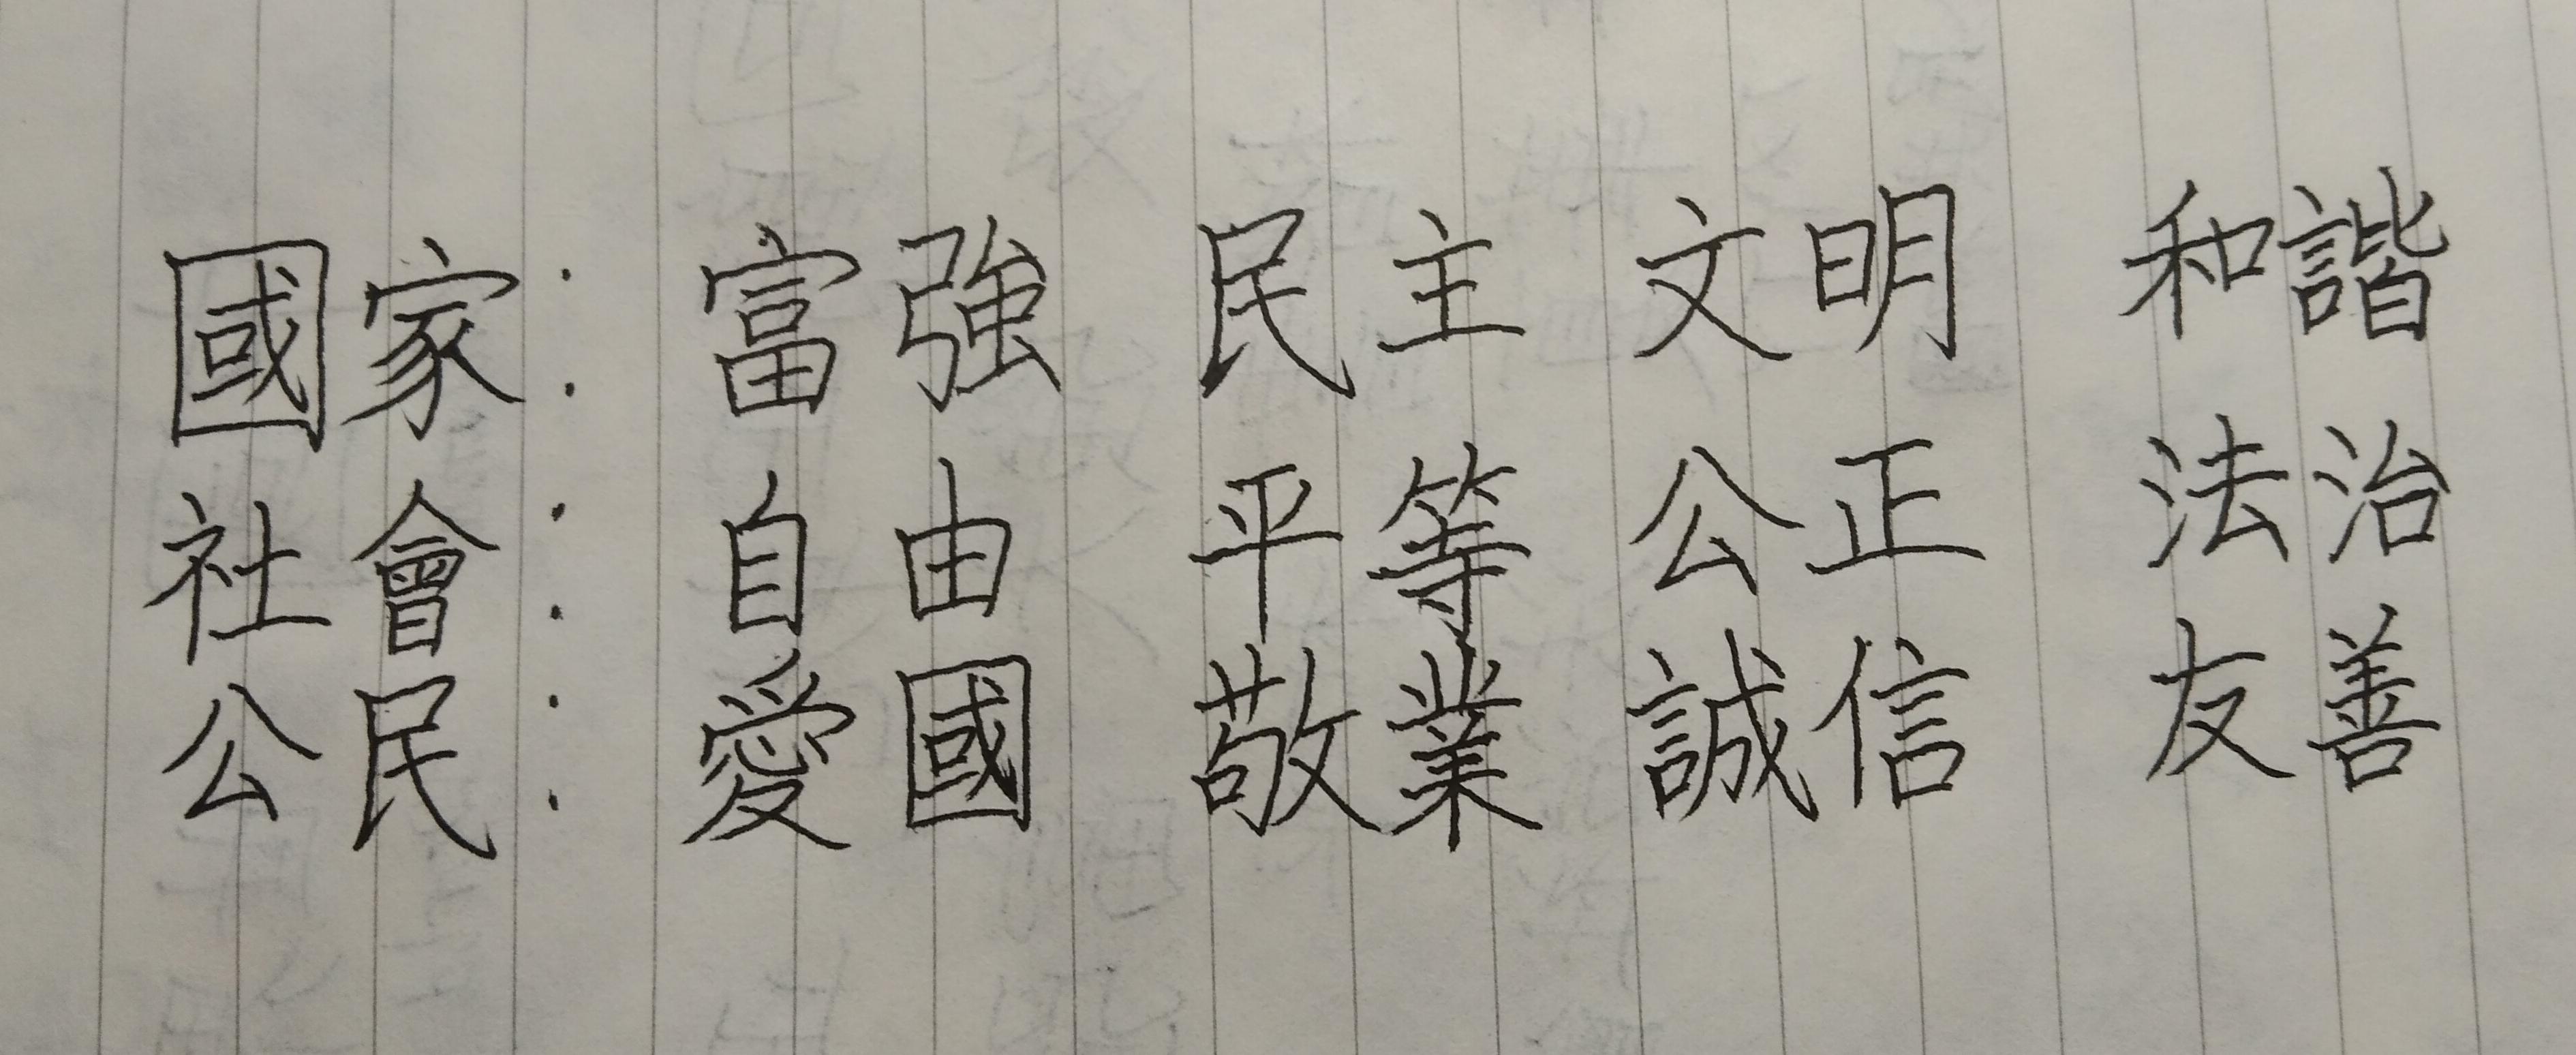 國家：富強 民主 文明 和諧
社會：自由 平等 公正 法治
公民：愛國 敬業 誠信 友善